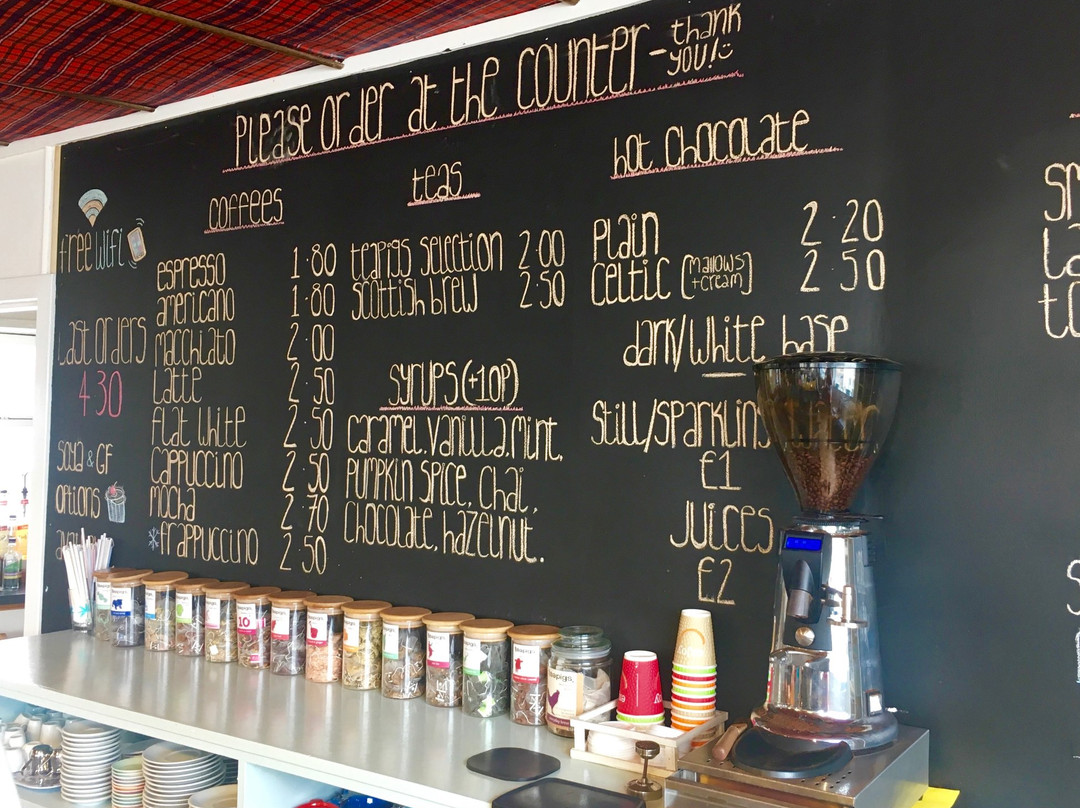 Please order at the counter - thank you! :)
free wifi
Last orders
4 30
soya & GF
options
coffees
espresso 1.80
americano 1.80
macchiato 2.00
latte 2.50
flat white 2.50
cappuccino 2.50
mocha 2.70
frappuccino 2.50
teas
teapigs selection 2.00
scottish brew 2.50
syrups (+10p)
caramel, vanilla, mint,
pumpkin spice, chai,
chocolate, hazelnut.
hot chocolate
plain 2.20
celtic [mallows + cream] 2.50
dark/white base
still/sparkling
£1
juices
£2
teapigs.
10